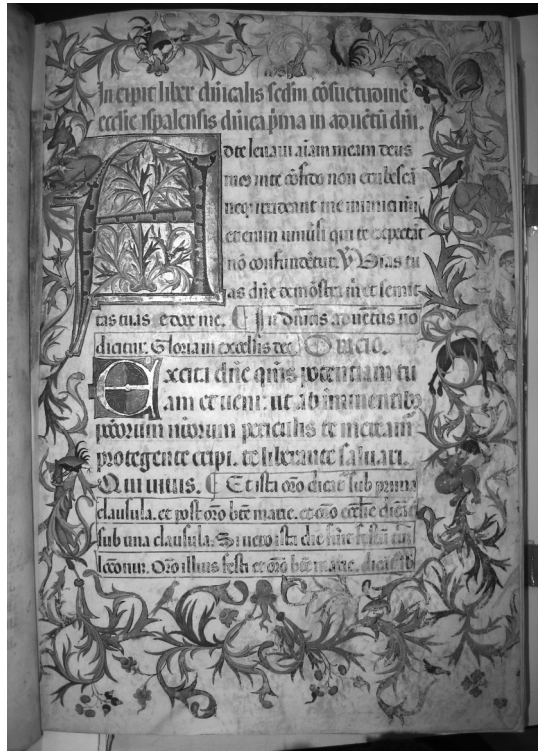 In cipit liber dñicalis scdm cōsuetudinē
ecclie ispalensis dñica p̃ma in aduētū dñi.
Ad te leuaui aīam meam deus
meus in te cōfido non erubescā
neq; irrideant me inimici mi
et enim uniu̇si qui te expectāt
nō confundētur. ℣ Uias tu
as dñe demōstra m̄ et semit
tas tuas edoce me. ¶ In dñicis aduētus nō
dicitur. Gloria in excelsis deo. Oracio.
Exciti dñe qm̄s potentiam tu
am et ueni. ut ab iminentib;
pctōrum nr̄orum periculis te meream̃
protegente eripi. te liberante saluari.
Qui uiuis. ¶ Et ista orō dicit̃ sub prima
clausula. et post orō bt̄e marie. et orō
sub una clausula. Si uero ista die
orō illius festi et orō bt̄e marie. dicit̃ sb